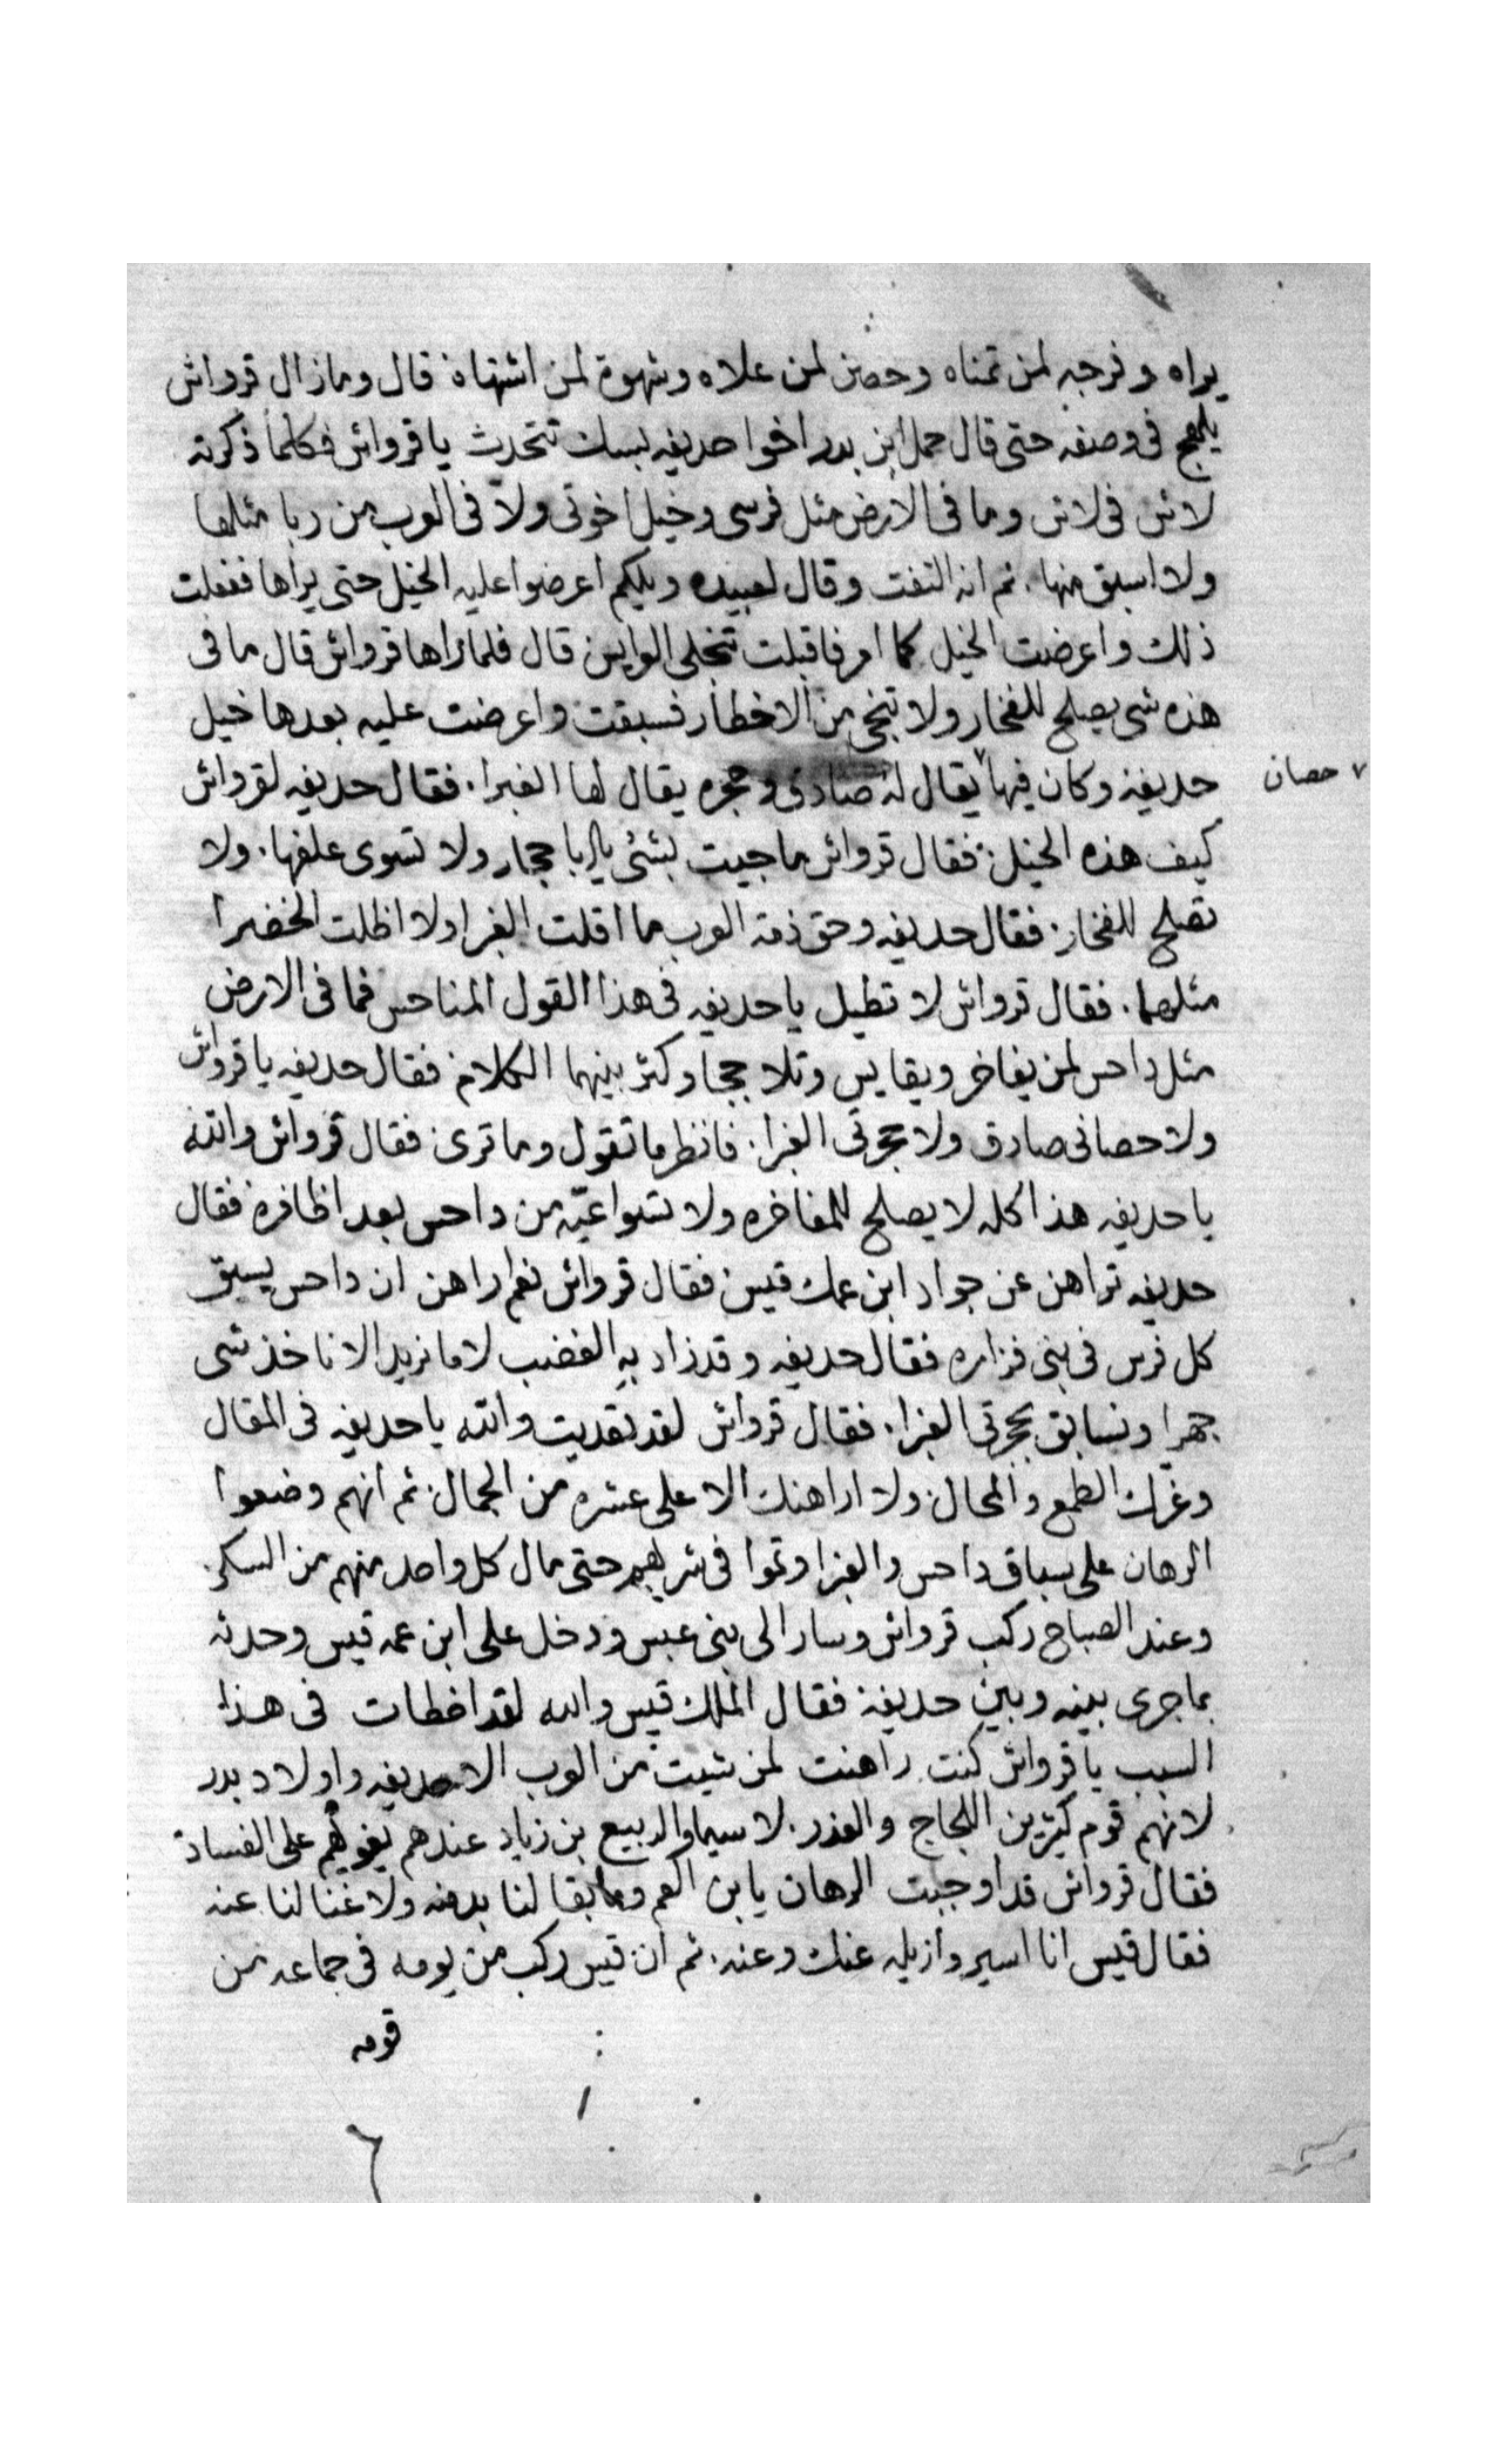 يراه وفرجه لمن تمناه وحصن لمن علاه وشهوة لمن اشتهاه قال ومازال قرواش
يلهج فى وصفه حتى قال حمل ابن بدر اخوا حديفه بسك تتحدث يا قرواش فكلما ذكرته
لاش فى لاش وما فى الارض مثل فرسى وخيل اخوتى ولا فى العرب من ربا مثلها
ولا اسبق منها . ثم انه التفت وقال لعبيده ويلكم اعرضوا عليه الخيل حتى يراها ففعلت
ذلك واعرضت الخيل كما امر فاقبلت تنجلى قال فلما راها قرواش قال ما فى
هذه شى يصلح للفخار ولا تنجى من الاخطار فسبقت واعرضت عليه بعدها خيل
حديفة وكان فيها ٧ يقال له صادق وحجره يقال لها الغبرا . فقال حديفه لقرواش
٧ حصان
كيف هذه الخيل فقال قرواش ما جيت بشئ يا ربا حجار ولا تسوى علفها . ولا
تصلح للفخار فقال حديفه وحق ذمة العرب ما اقلت الغبرا ولا اظلت الخضرا
مثلهما . فقال قرواش لا تطيل يا حديفه فى هذا القول المناحس فما فى الارض
مثل داحس لمن يفاخر ويقايس وتلاججا وكثر بينهما الكلام فقال حديفه يا قرواش
ولا حصانى صادق ولا حجرتى الغبرا . فانظر ما تقول وما ترى فقال قرواش والله
يا حديفه هذا كله لا يصلح للمفاخره ولا تسوا عيّه من داحس بعد اظافره فقال
حديفه تراهن عن جواد ابن عمك قيس فقال قرواش نعم اراهن ان داحس يسبق
كل فرس فى بنى فزاره فقال حديفه وقد زاد به الغضب لا ما نريد الا ناخذ شى
جهرا ونسابق بحجرتى الغبرا . فقال قرواش لقد تعديت والله يا حديفه فى المقال
وغرك الطمع والمحال ولا اراهنك الا على عشره من الجمال ثم انهم وضعوا
الرهان على سباق داحس والغبرا وتموا فى شربهم حتى مال كل واحد منهم من السكر
وعند الصباح ركب قرواش وسار الى بنى عبس ودخل على ابن عمه قيس وحدثه
بما جرى بينه وبين حديفة فقال الملك قيس والله لقد اخطات فى هذا
السبب يا قرواش كنت راهنت لمن شيت من العرب الا حديفه واولاد بدر
لانهم قوم كثيرين اللجاج والغدر . لا سيما والربيع بن زياد عندهم يغويهم على الفساد
فقال قرواش قد اوجبت الرهان يا بن العم وما بقا لنا بد منه ولا غنا لنا عنه
فقال قيس انا اسير وازيله عنك وعنه . ثم ان قيس ركب من يومه فى جماعه من
قومه